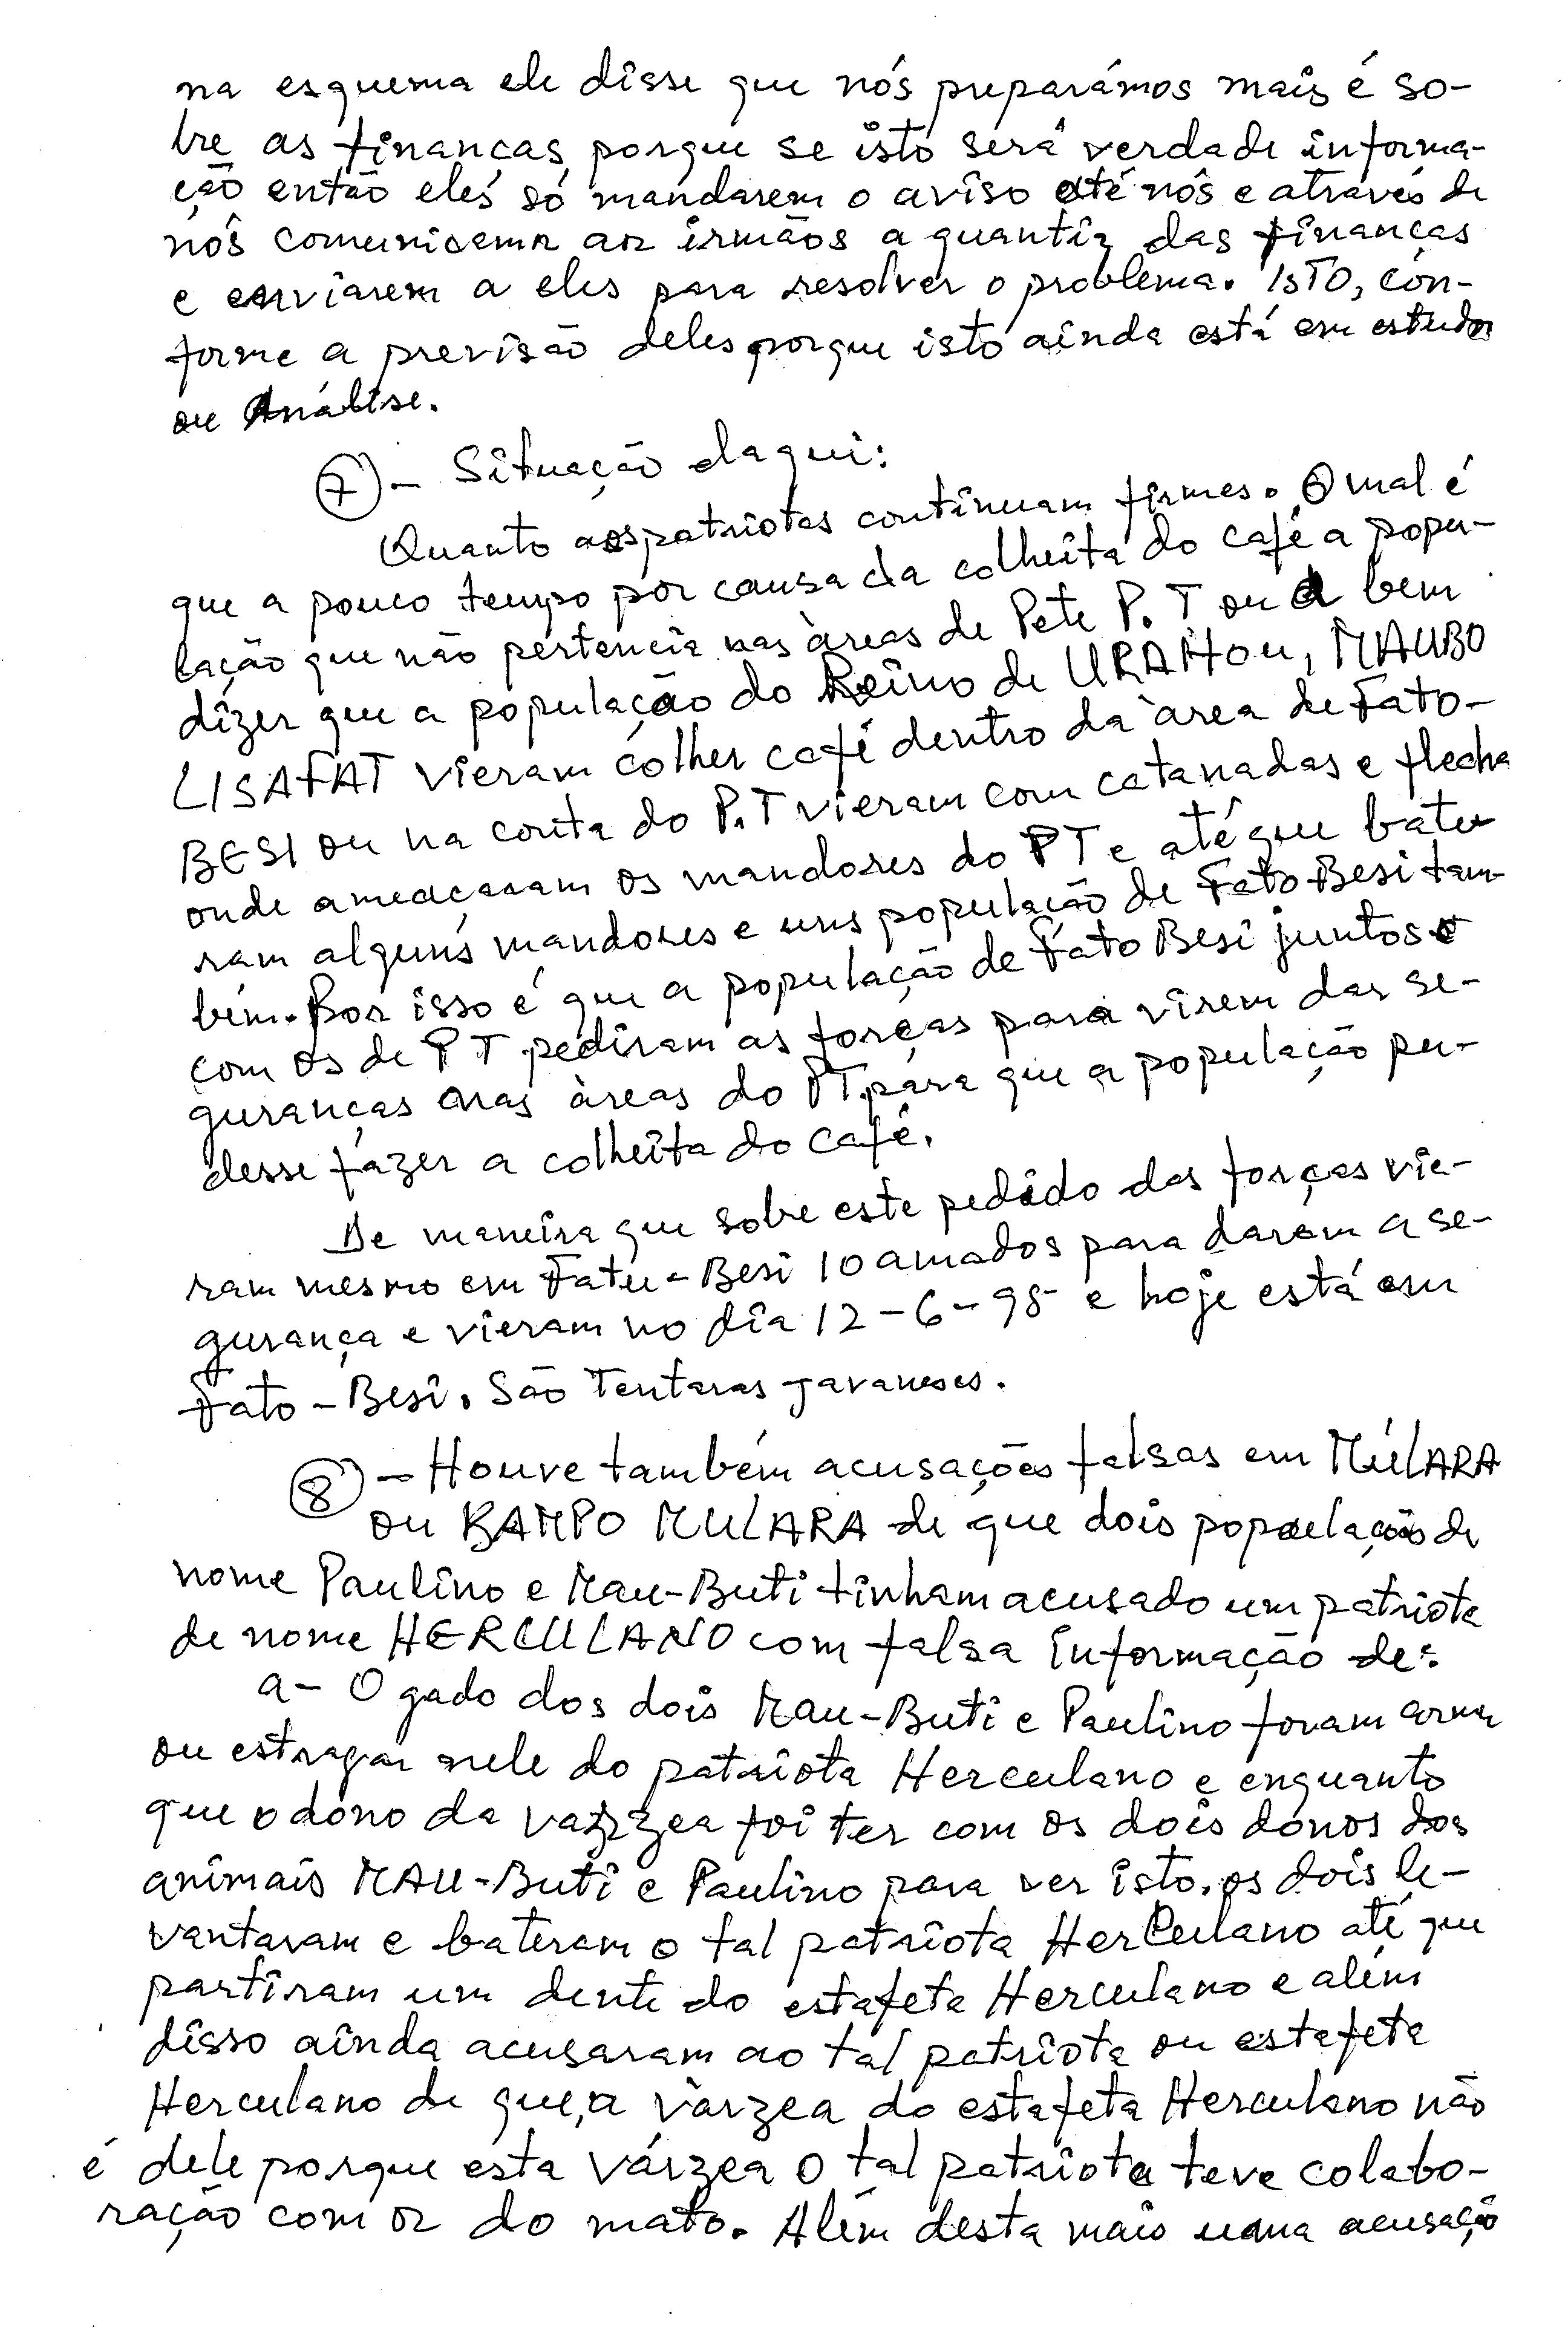 na esquema ele disse que nós preparámos mais é so-
bre as finanças porque se isto será verdade informa-
ção então eles só mandarem o aviso até nós e através de
nós comunicamos aos irmãos a quantia das finanças
e enviarem a eles para resolver o problema. ISTO, con-
forme a previsão deles porque isto ainda está em estudos
ou Análise.
7 - Situação daqui:
Quanto aos patriotas continuam firmes. O mal é
que a pouco tempo por causa da colheita do café a popu-
lação que não pertencia nas àreas de Pete P.T ou a bem
dizer que a população do Reino de URAHOU, MAUBO
LISAFAT vieram colher café dentro da àrea de Fato-
BESI ou na conta do P.T vieram com catanadas e flecha
onde ameaçaram os mandores do PT e até que bate-
ram alguns mandores e uns população de Fato-Besi tam-
bém. Por isso é que a população de Fato Besi juntos
com os de PT pediram as forças para virem dar se-
guranças nas àreas do PT para que a população pu-
desse fazer a colheita do café.
De maneira que sobre este pedido das forças vie-
ram mesmo em Fatu-Besi 10 amados para darem a se-
gurança e vieram no dia 12-6-95 e hoje está em
Fato-Besi. São Tentaras Javaneses.
8 - Houve também acusações falsas em MÚLARA
ou KAMPO MULARA de que dois população de
nome Paulino e Mau-Buti tinham acusado um patriota
de nome HERCULANO com falsa informação de:
a- O gado dos dois Mau-Buti e Paulino foram
ou estragar nele do patriota Herculano e enquanto
que o dono da vazzea foi ter com os dois donos dos
animais MAU-Buti e Paulino para ver isto, os dois le-
vantaram e bateram o tal patriota Herculano até que
partiram um dente do estafeta Herculano e além
disso ainda acusaram ao tal patriota ou estafeta
Herculano de que, a vàrzea do estafeta Herculano não
é dele porque esta várzea o tal patriota teve colabo-
ração com os do mato. Além desta mais uma acusação